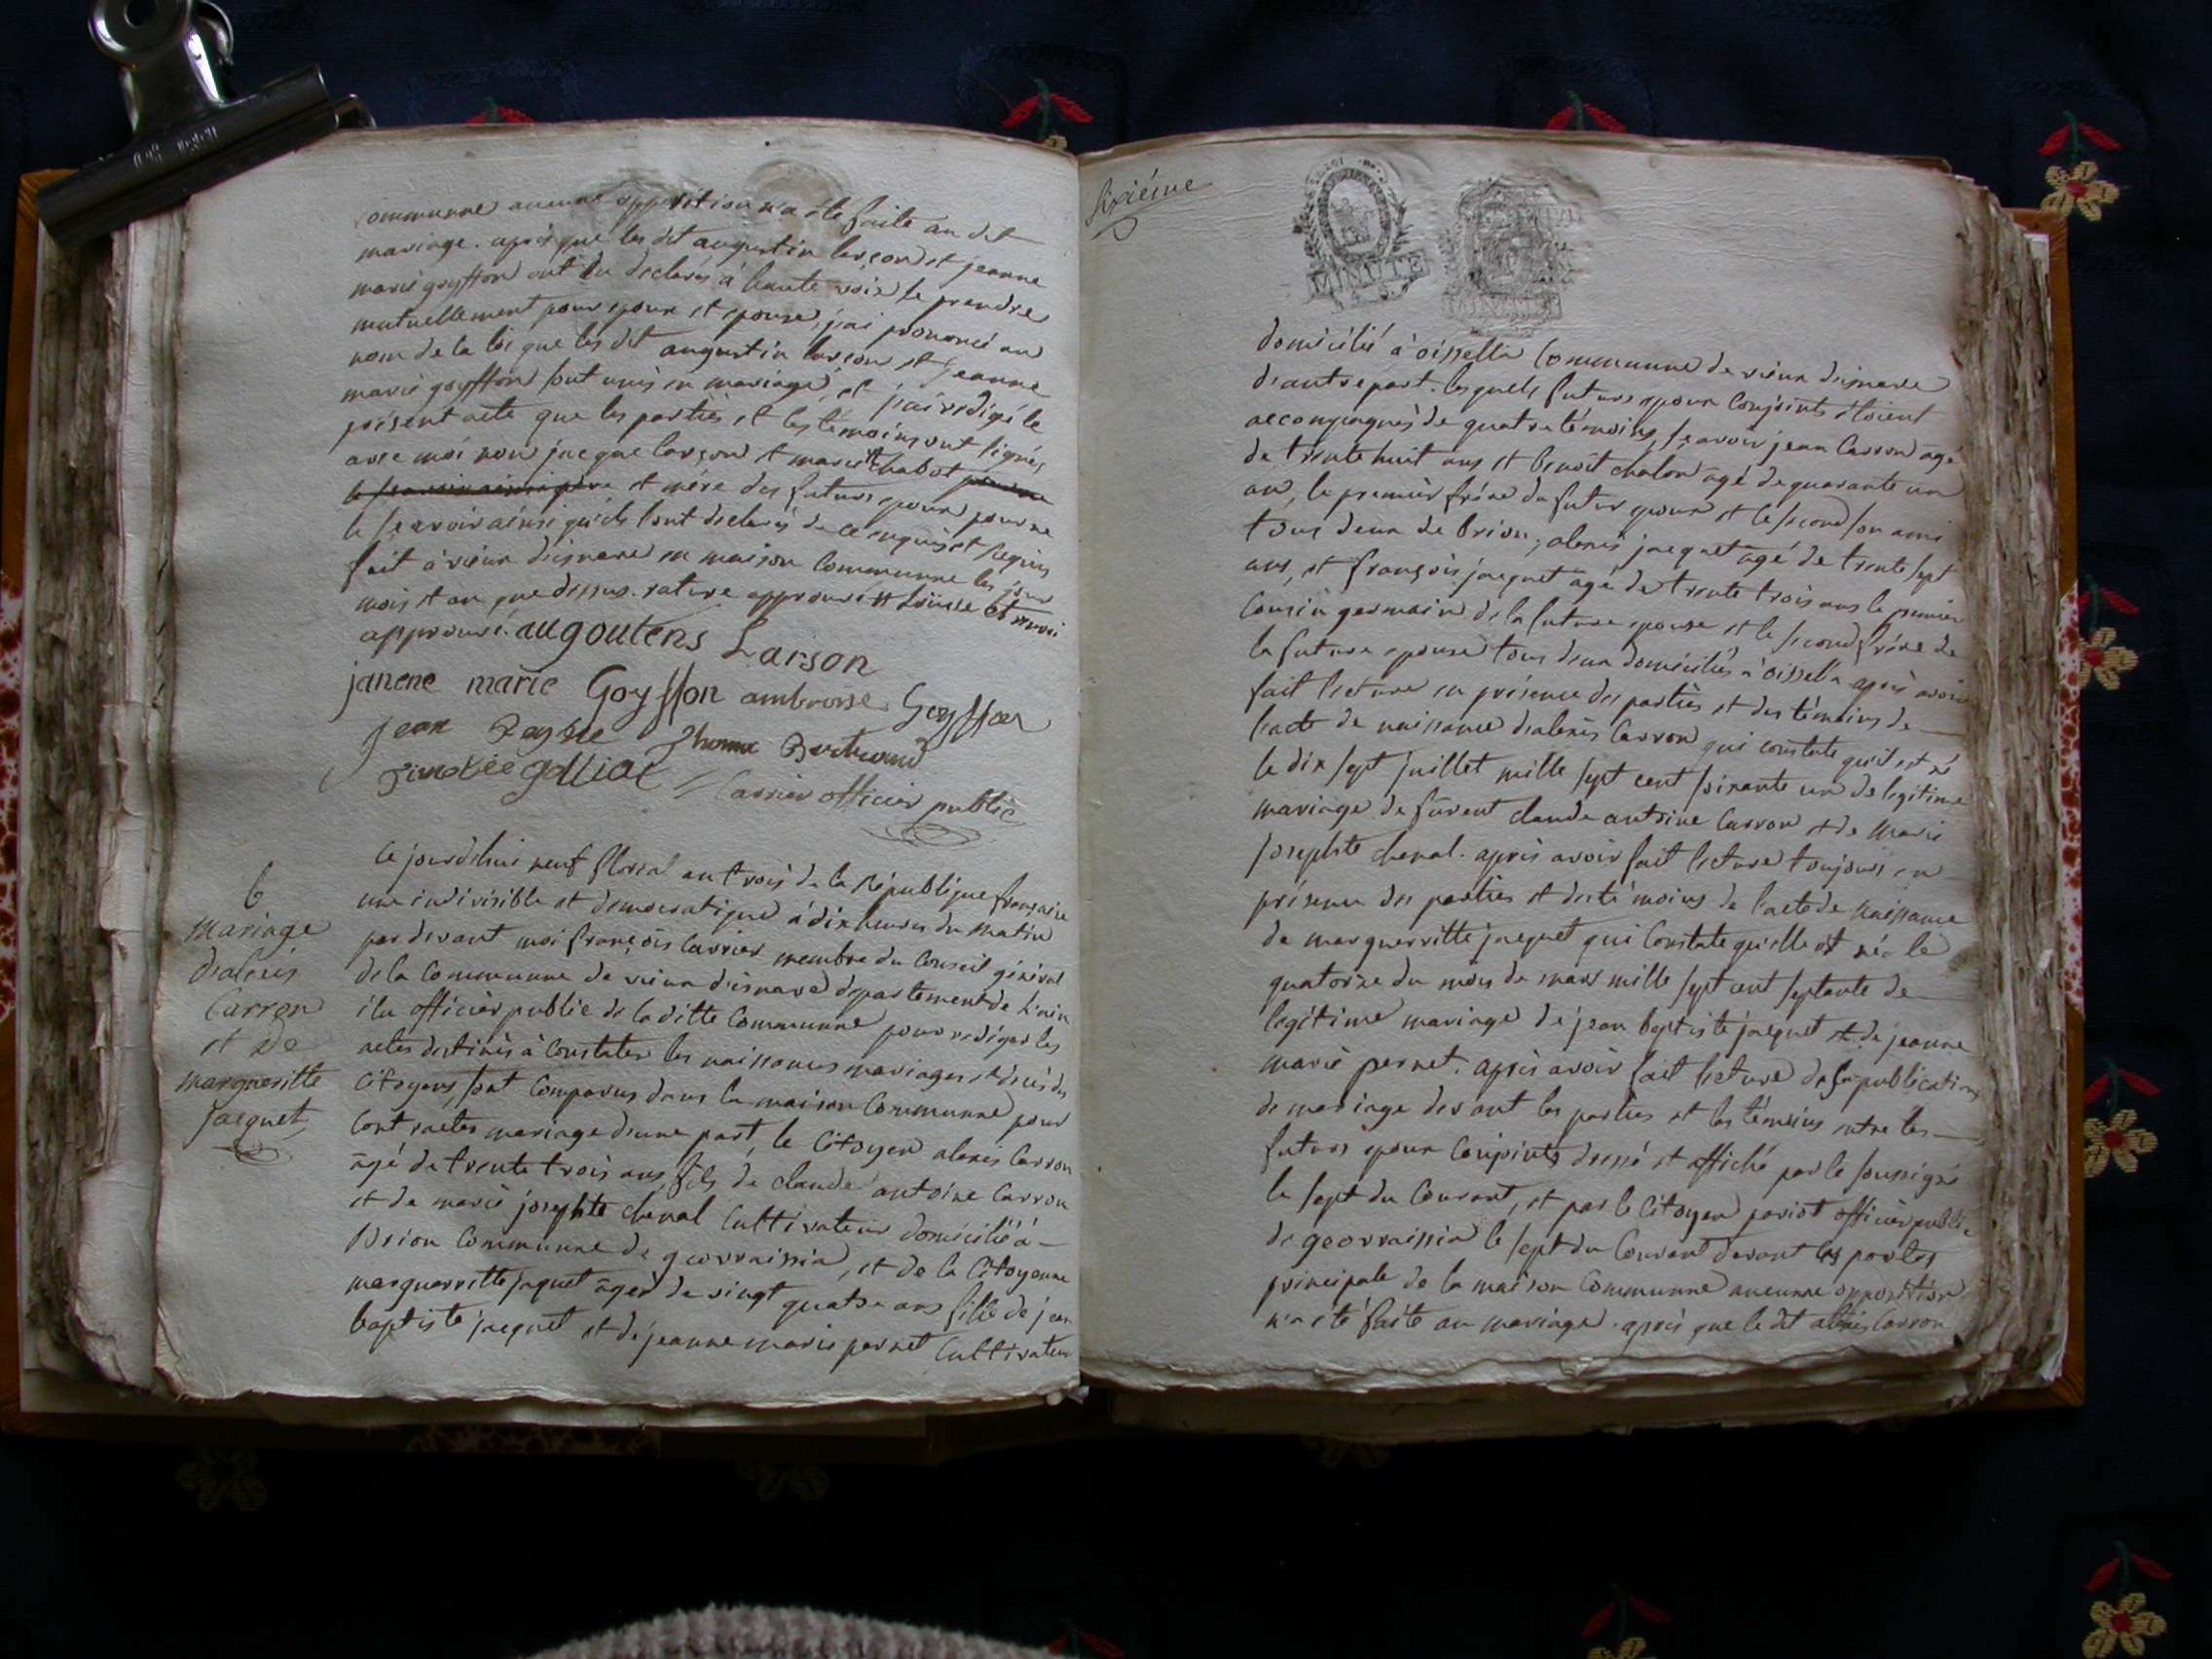 Communne aucune opposition n'a été faite au dit
mariage. après que les dit augustin larçon et jeanne
marie goyffon ont eu declarés à haute voix se prendre
mutuellement pour epoux et epouse, j'ai prononcé au
nom de la loi que les dit augustin larçon et jeanne
marie goyffon sont unis en mariage, et j'ai redigé le
présent acte que les parties et les témoins ont signés
avec moi non jacque larçon et marie chabot
et mére des futurs epoux pour ne
le sçavoir ainsi qu'ils l'ont declarés de ce enquis et requis
fait à vieux disinave en maison Communne les jour
mois et an que dessus. rature approuvé et renvoi
approuvé. augoutens Larson
janene marie Goyffon ambroise Goyffon
jean
golliat Carrier officier public
6
mariage
d'alexis
Carron
et de
margueritte
Jacquet
Ce jourd'hui neuf floreal an trois de la République française
une indivisible et democratique à dix heures du matin
par devant moi françois Carrier membre du Conseil général
de la Communne de vieux disinave departement de L'ain
élu officier public de la ditte Communne pour rediger les
actes destinés à Constater les naissances mariages et decés des
Citoyens, sont Comparus dans la maison Communne pour
Contracter mariage d'une part, le Citoyen alexis Carron
âgé de trente trois ans, fils de claude antoine Carron
et de marie josephte cheval Cultivateur domicilié à
Brion Communne de georraissia, et de la Citoyenne
marguerritte jaquet âgée de vingt quatre ans fille de jean
baptiste jacquet et de jeanne marie pernet Cultivateur
Sixiéme
MINUTE
domicilié à oissella Communne de vieux disinave
d'autre part. lesquels futurs epoux Conjoints étoient
accompagnés de quatre témoins, sçavoir jean Carron agé
de trente huit ans et benoit chalon agé de quarante un
an, le premier frére du futur epoux et le second son ami
tous deux de brion; alexis jacquet agé de trente sept
ans, et françois jacquet agé de trente trois ans le premier
Cousin germain de la future epouse et le second frére de
la future epouse tous deux domiciliés à oissella après avoir
fait lecture en présence des parties et des témoins de
l'acte de naissance d'alexis Carron qui constate qu'il est né
le dix sept juillet mille sept cent soixante un de legitime
mariage de furent claude antoine Carron et de Marie
josephte cheval. après avoir fait lecture toujours en
présence des parties et des témoins de l'acte de Naissance
de marguerritte jacquet qui Constate qu'elle est née le
quatorze du mois de mars mille sept cent septante de
legitime mariage de jean baptiste jacquet et de jeanne
marie pernet. après avoir fait lecture de la publication
de mariage devant les parties et les témoins entre les
futurs epoux Conjoints dressé et affiché par le soussigné
le sept du Courant, et par le Citoyen pariot officier public
de georraissia le sept du Courant devant les portes
principale de la maison Communne aucunne opposition
n'a été faite au mariage. après que le dit alexis Carron